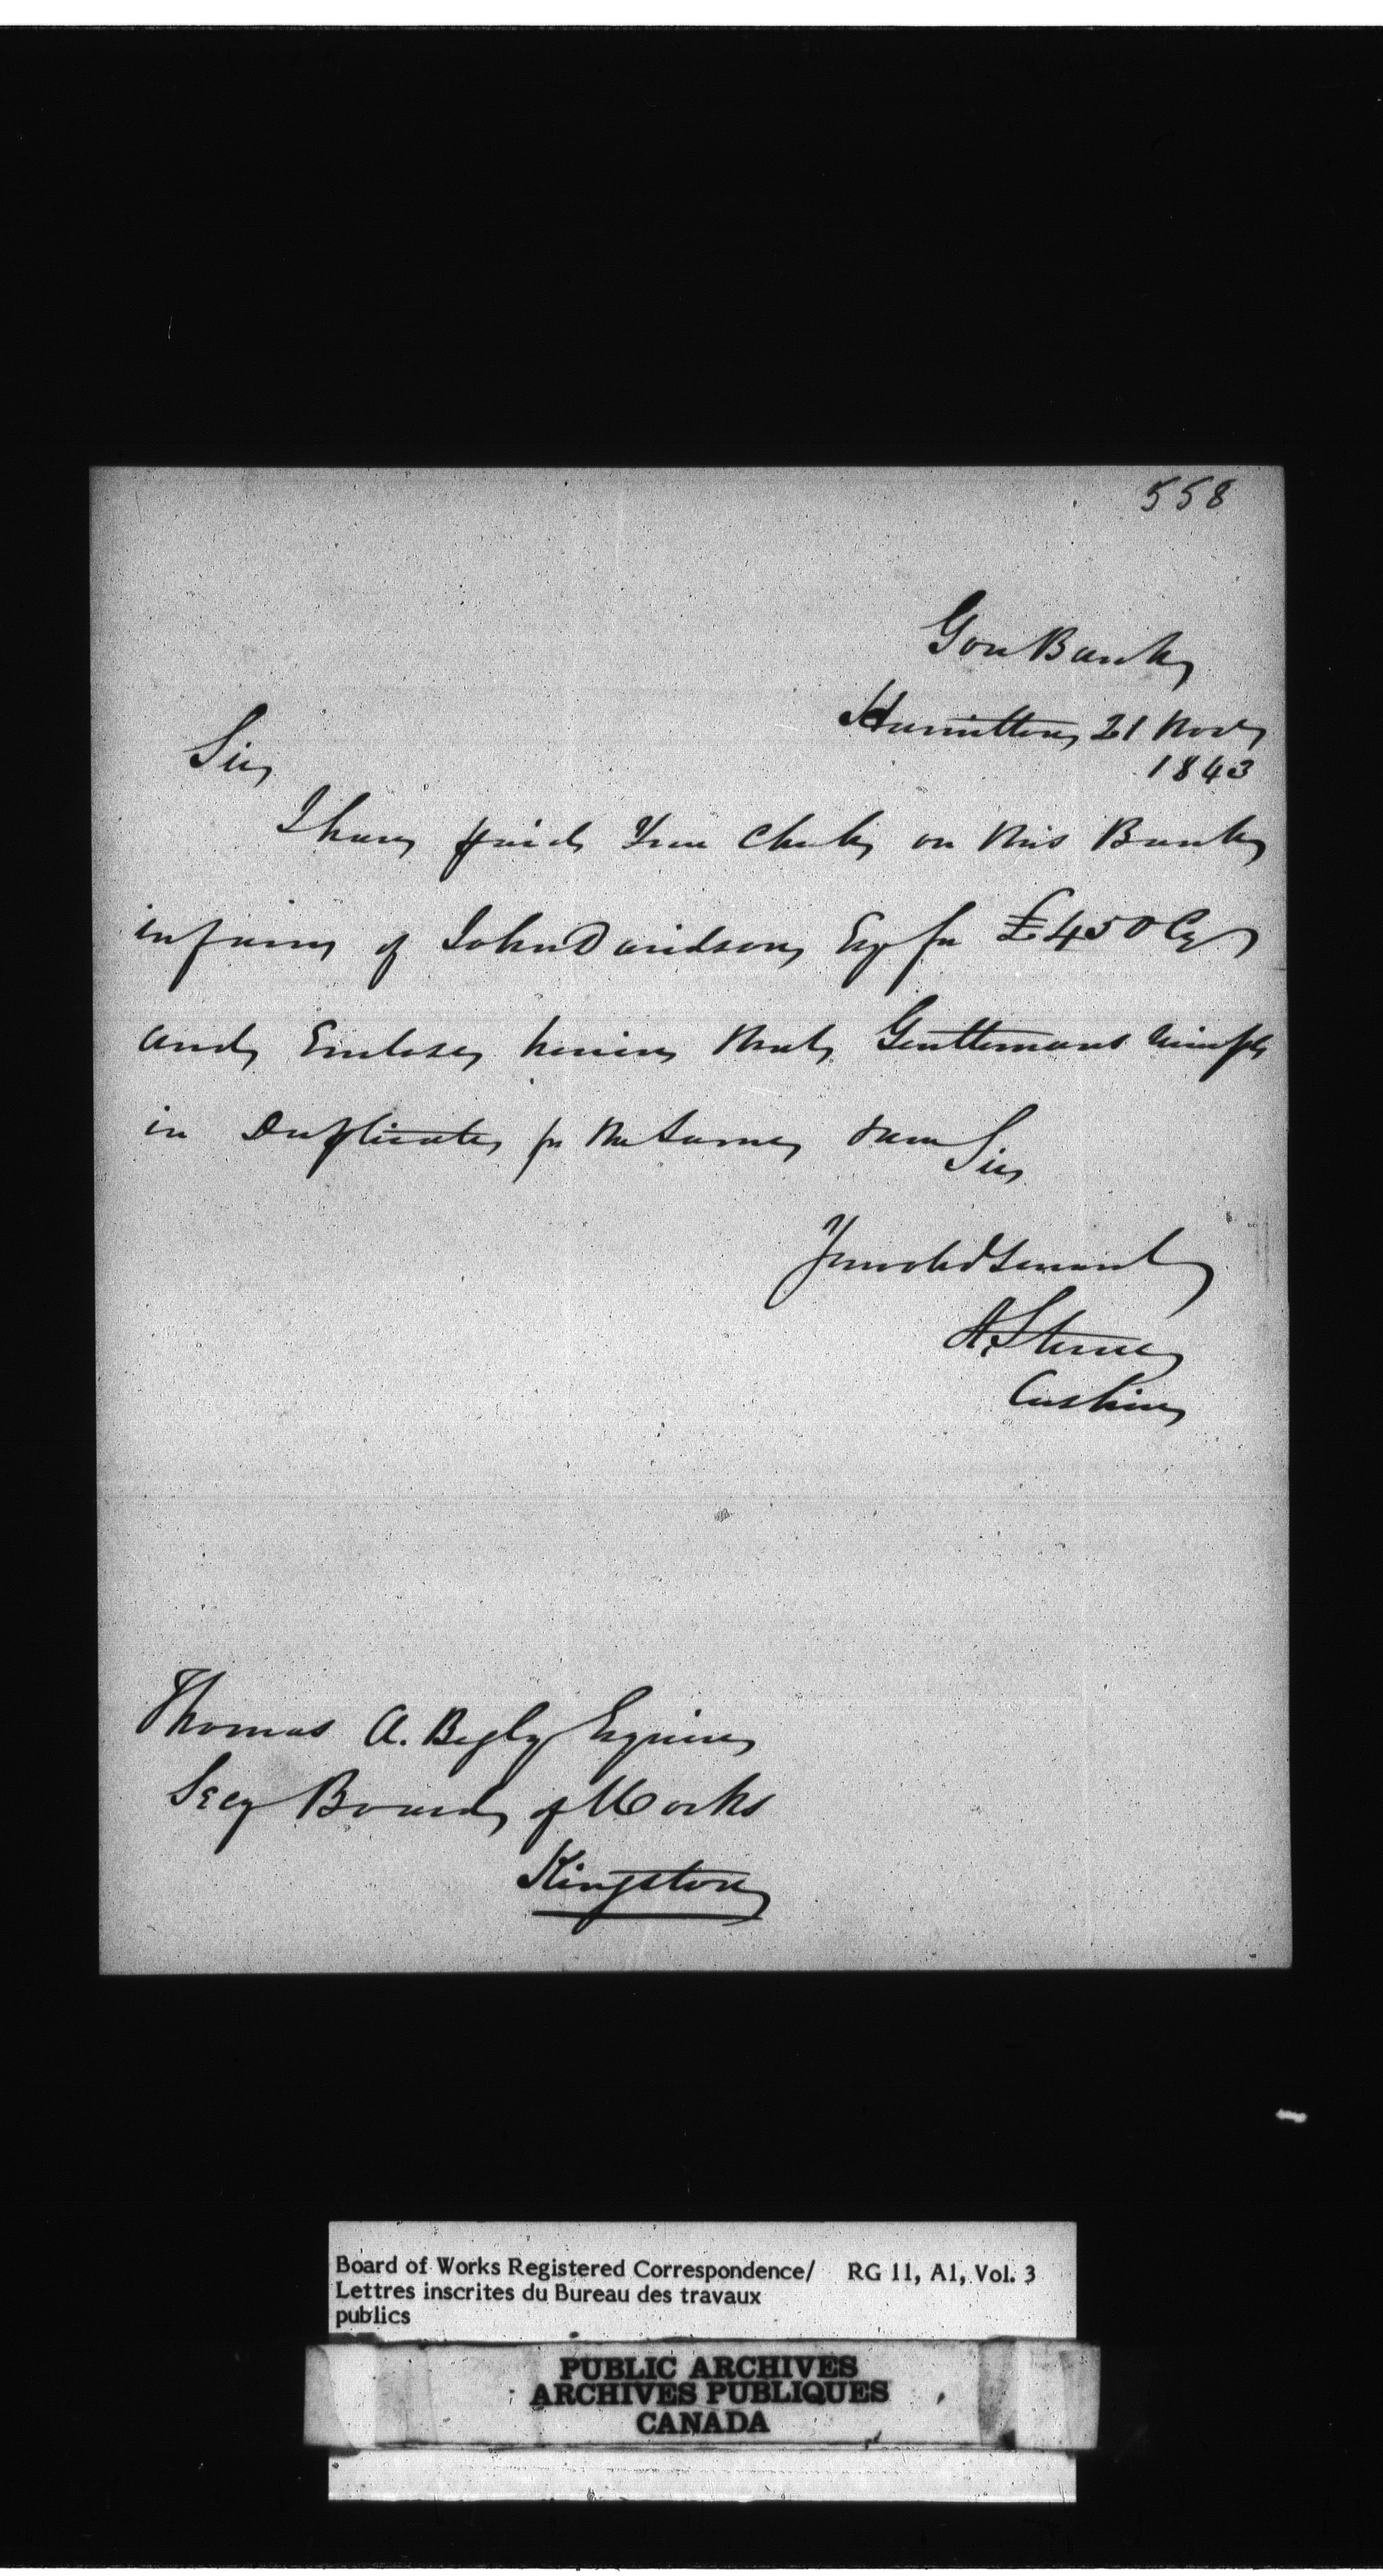 558
Gore Bank
Hamilton 21 Nov
1843
Sir
I have paid your check on this Bank
in favour of John Davidson Esq for £450 Cy
and Enclose herein that Gentlemans receipt
in Duplicate for the same I am Sir
Your obdt Servant
A. Steven
Cashier
Thomas A. Begly Esquire
Secy Board of Works
Kingston
Board of Works Registered Correspondence/ RG 11, A1, Vol. 3
Lettres inscrites du Bureau des travaux
publics
PUBLIC ARCHIVES
ARCHIVES PUBLIQUES
CANADA